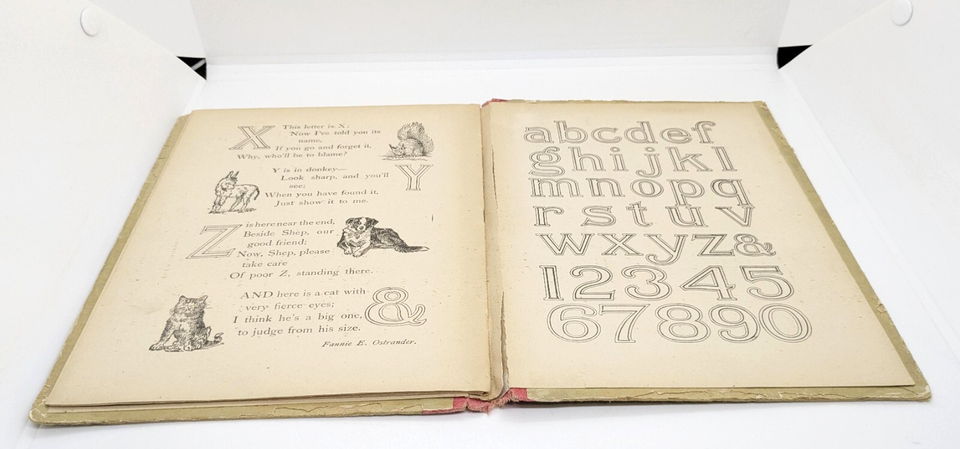 X This letter is X;
Now I've told you its
name,
If you go and forget it,
Why, who'll be to blame?
Y
Y is in donkey—
Look sharp, and you'll
see;
When you have found it,
Just show it to me.
Z is here near the end,
Beside Shep, our
good friend;
Now, Shep, please
take care
Of poor Z, standing there.
AND here is a cat with
very fierce eyes;
&
I think he's a big one,
to judge from his size.
Fannie E. Ostrander.
abcdef
ghijkl
mnopq
rstuv
wxyz&
12345
67890